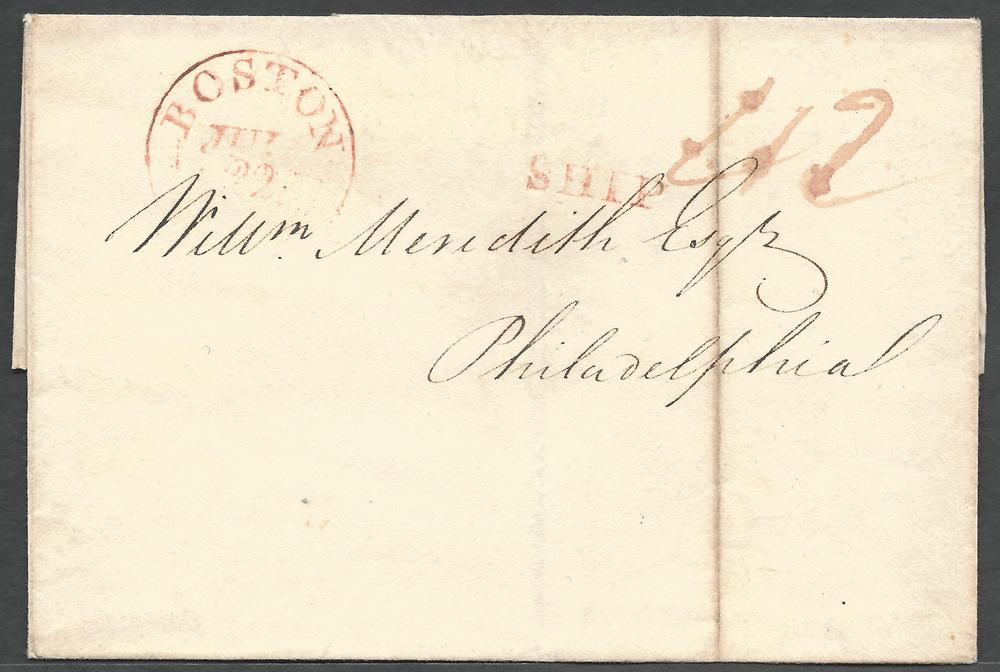 BOSTON
JUL
22
SHIP
Willm. Meredith Esqr
Philadelphia